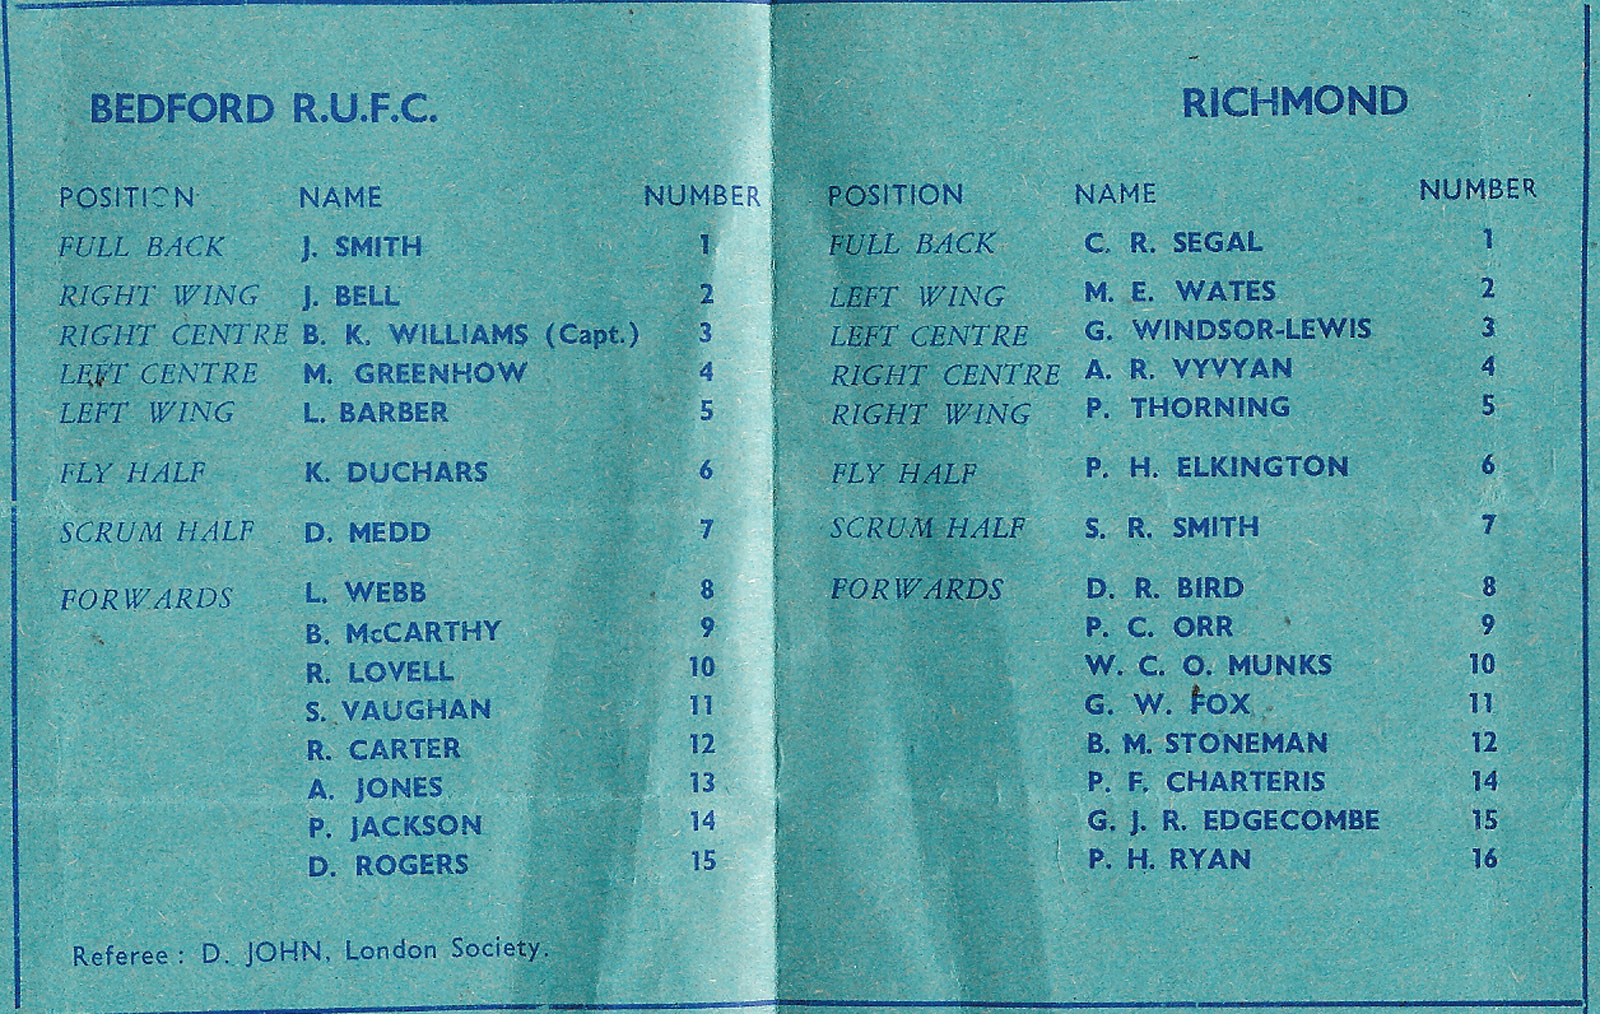 BEDFORD R.U.F.C.
POSITION NAME NUMBER
FULL BACK J. SMITH 1
RIGHT WING J. BELL 2
RIGHT CENTRE B. K. WILLIAMS (Capt.) 3
LEFT CENTRE M. GREENHOW 4
LEFT WING L. BARBER 5
FLY HALF K. DUCHARS 6
SCRUM HALF D. MEDD 7
FORWARDS L. WEBB 8
B. McCARTHY 9
R. LOVELL 10
S. VAUGHAN 11
R. CARTER 12
A. JONES 13
P. JACKSON 14
D. ROGERS 15
Referee : D. JOHN, London Society.
RICHMOND
POSITION NAME NUMBER
FULL BACK C. R. SEGAL 1
LEFT WING M. E. WATES 2
LEFT CENTRE G. WINDSOR-LEWIS 3
RIGHT CENTRE A. R. VYVYAN 4
RIGHT WING P. THORNING 5
FLY HALF P. H. ELKINGTON 6
SCRUM HALF S. R. SMITH 7
FORWARDS D. R. BIRD 8
P. C. ORR 9
W. C. O. MUNKS 10
G. W. FOX 11
B. M. STONEMAN 12
P. F. CHARTERIS 14
G. J. R. EDGECOMBE 15
P. H. RYAN 16